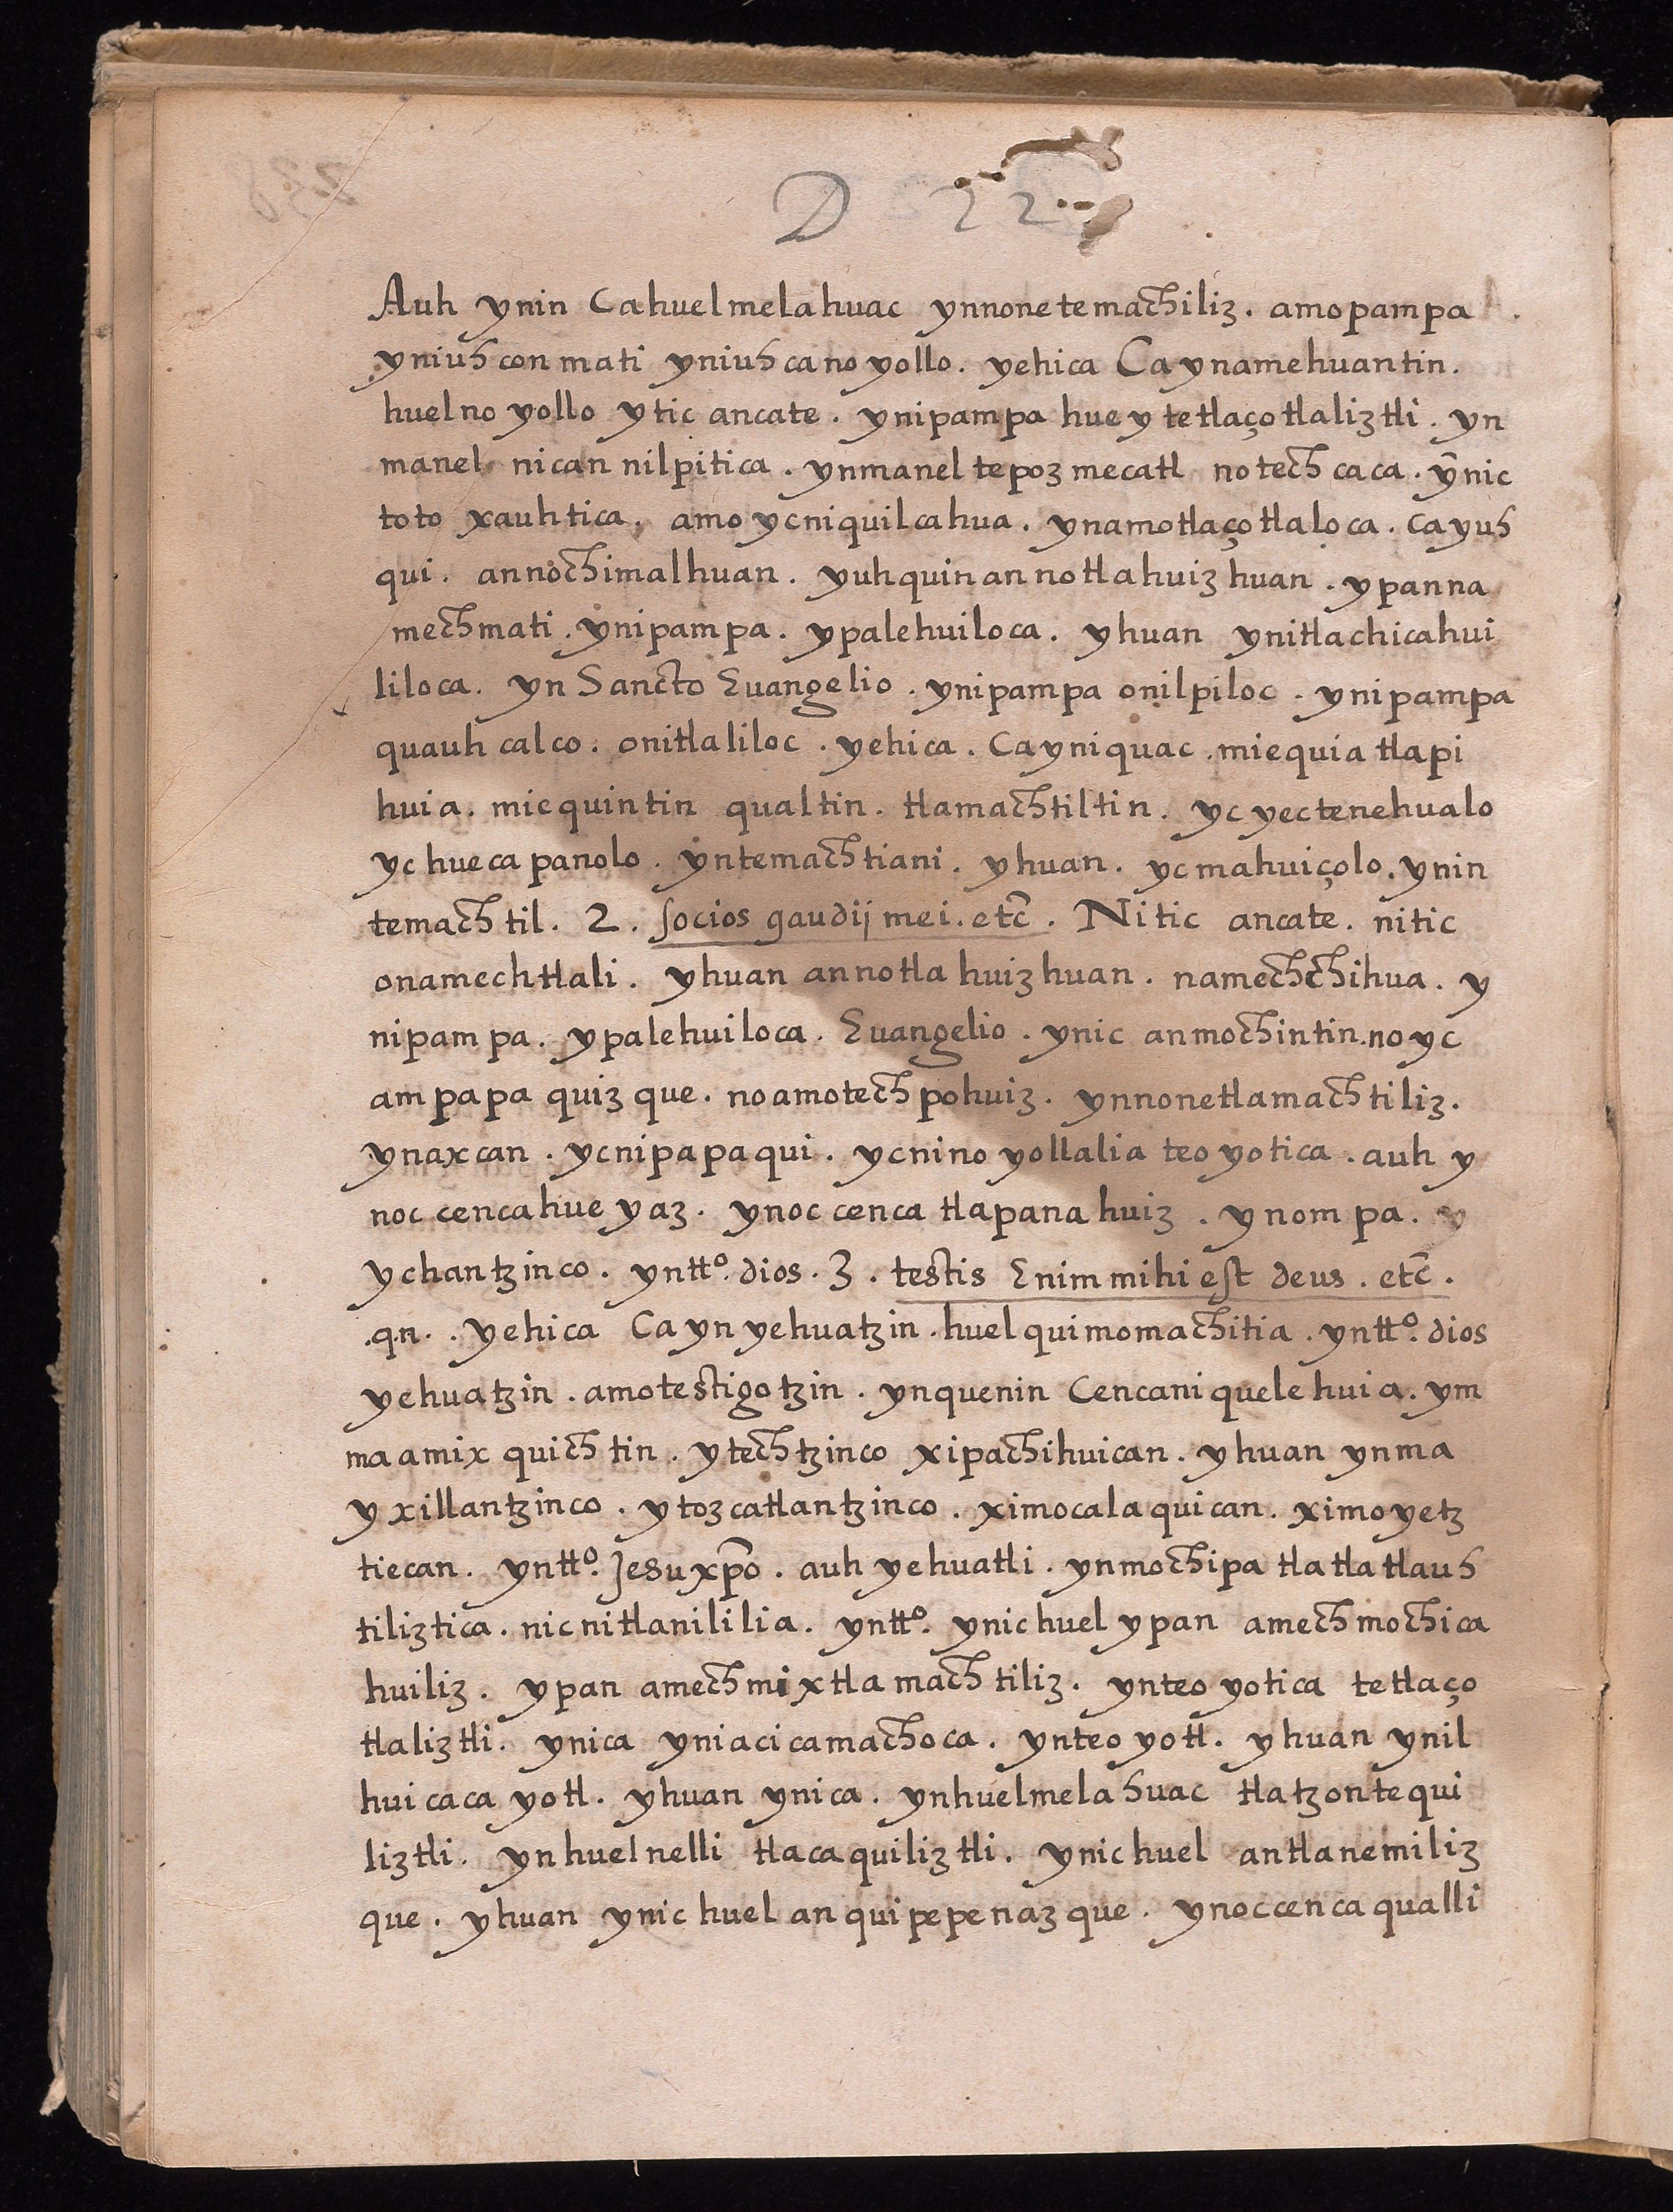 D 22
Auh ynin Cahuelmelahuac ynnonetemachiliz. amopampa
yniuhconmati yniuhcanoyollo. yehica Caynamehuantin.
huelno yollo ytic ancate. ynipampa huey tetlaçotlaliztli. yn
manel nican nilpitica. ynmanel tepozmecatl notech caca. ȳnic
toto xauhtica. amo ycniquilcahua. ynamotlaçotlaloca. cayuh
qui. annochimalhuan. yuhquinannotlahuizhuan. ypanna
mechmati. ynipampa. ypalehuiloca. yhuan ynitlachicahui
liloca. yn Sancto Euangelio. ynipampa onilpiloc. ynipampa
quauhcalco. onitlaliloc. yehica. Cayniquac. miequia tlapi
huia. miequintin qualtin. tlamachtiltin. yc yectenehualo
yc huecapanolo. yntemachtiani. yhuan. ycmahuiçolo. ynin
temachtil. 2. socios gaudij mei. etc̄. Nitic ancate. nitic
onamechtlali. yhuan annotlahuizhuan. namechchihua. y
nipampa. ypalehuiloca. Euangelio. ynic anmochintin. noyc
ampapaquizque. noamotechpohuiz. ynnonetlamachtiliz.
ynaxcan. ycnipapaqui. ycnino yollalia teoyotica. auh y
noc cencahueyaz. ynoc cenca tlapanahuiz. ynompa. y
ychantzinco. yntt.º dios. 3. testis Enim mihi est deus. etc̄.
.q.n.. yehica Caynyehuatzin. huelquimomachitia. yntt.º dios
yehuatzin. amotestigotzin. ynquenin Cencaniquelehuia. ym
ma amixquichtin. ytechtzinco xipachihuican. yhuan ynma
yxillantzinco. ytozcatlantzinco. ximocalaquican. ximoyetz
tiecan. yntt.º Jesuxp̄o. auh yehuatli. ynmochipa tlatlatlauh
tiliztica. nicnitlanililia. yntt.º ynichuel ypan amechmochica
huiliz. ypan amechmixtlamachtiliz. ynteoyotica tetlaço
tlaliztli. ynica yniacicamachoca. ynteoyotl. yhuan ynil
huicacayotl. yhuan ynica. ynhuelmelahuac tlatzontequi
liztli. ynhuelnelli tlacaquiliztli. ynichuel antlanemiliz
que. yhuan ynic huel anquipepenazque. ynoccencaqualli